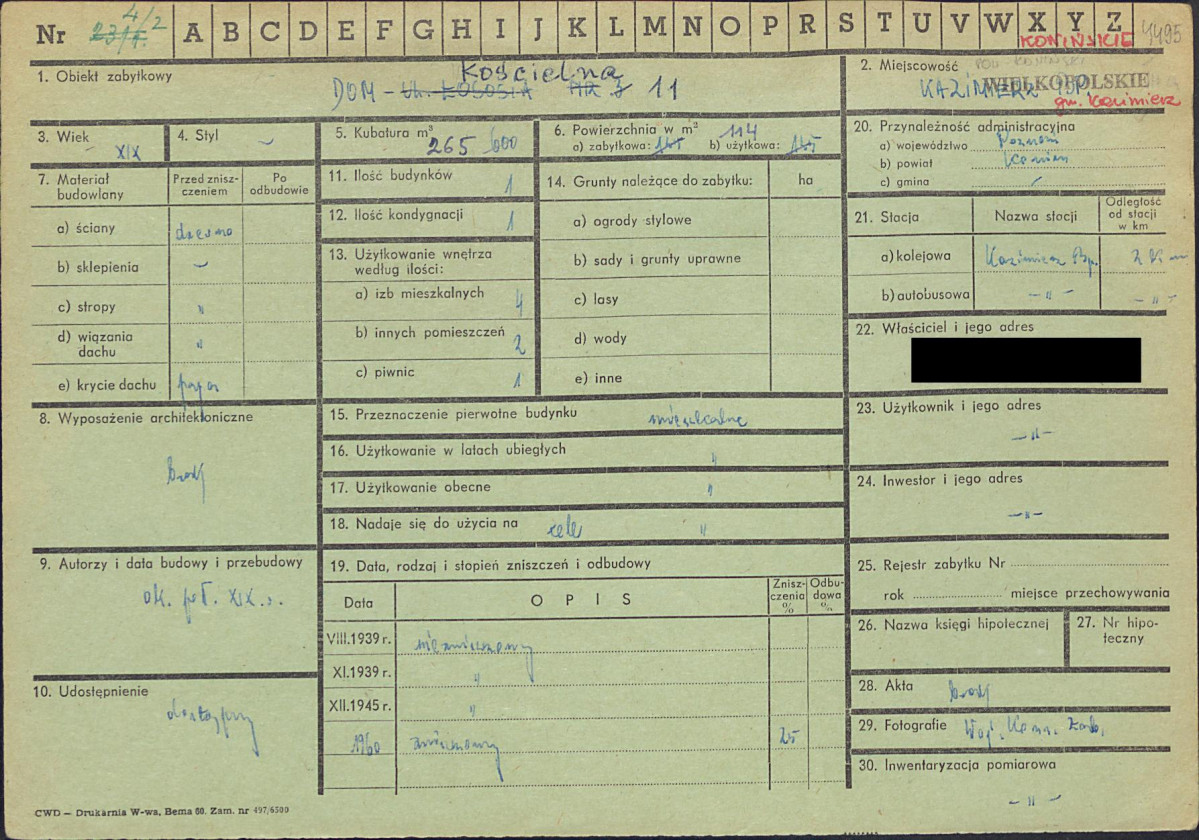 Nr 4/2 A B C D E F G H I J K L M N O P R S T U V W X Y Z 4495
KONIŃSKIE
1. Obiekt zabytkowy
Kościelna
DOM – 11
2. Miejscowość
WIELKOPOLSKIE
KAZIMIERZ BP.
gm. Kazimierz
3. Wiek
XIX
4. Styl
5. Kubatura m³
265 600
6. Powierzchnia w m²
a) zabytkowa: 145 b) użytkowa: 145
114
7. Materiał budowlany
Przed zniszczeniem
Po odbudowie
a) ściany drewno
b) sklepienia –
c) stropy "
d) wiązania dachu "
e) krycie dachu papa
8. Wyposażenie architektoniczne
brak
9. Autorzy i data budowy i przebudowy
ok. poł. XIX. w.
10. Udostępnienie
dostępny
11. Ilość budynków 1
12. Ilość kondygnacji 1
13. Użytkowanie wnętrza
według ilości:
a) izb mieszkalnych 4
b) innych pomieszczeń 2
c) piwnic 1
14. Grunty należące do zabytku: ha
a) ogrody stylowe
b) sady i grunty uprawne
c) lasy
d) wody
e) inne
15. Przeznaczenie pierwotne budynku mieszkalne
16. Użytkowanie w latach ubiegłych "
17. Użytkowanie obecne "
18. Nadaje się do użycia na cele "
19. Data, rodzaj i stopień zniszczeń i odbudowy
Data OPIS Zniszczenia % Odbudowa %
VIII.1939 r. niezniszczony
XI.1939 r. "
XII.1945 r. "
1960 zniszczony 25
20. Przynależność administracyjna
a) województwo Poznań
b) powiat Konin
c) gmina
21. Stacja
Nazwa stacji
Odległość od stacji w km
a) kolejowa Kazimierz Bp. 2 km
b) autobusowa – " – – " –
22. Właściciel i jego adres
23. Użytkownik i jego adres
– " –
24. Inwestor i jego adres
– " –
25. Rejestr zabytku Nr
rok miejsce przechowywania
26. Nazwa księgi hipotecznej
27. Nr hipoteczny
28. Akta brak
29. Fotografie Woj. Kons. Zab.
30. Inwentaryzacja pomiarowa
– " –
CWD – Drukarnia W-wa, Bema 60. Zam. nr 497/6300